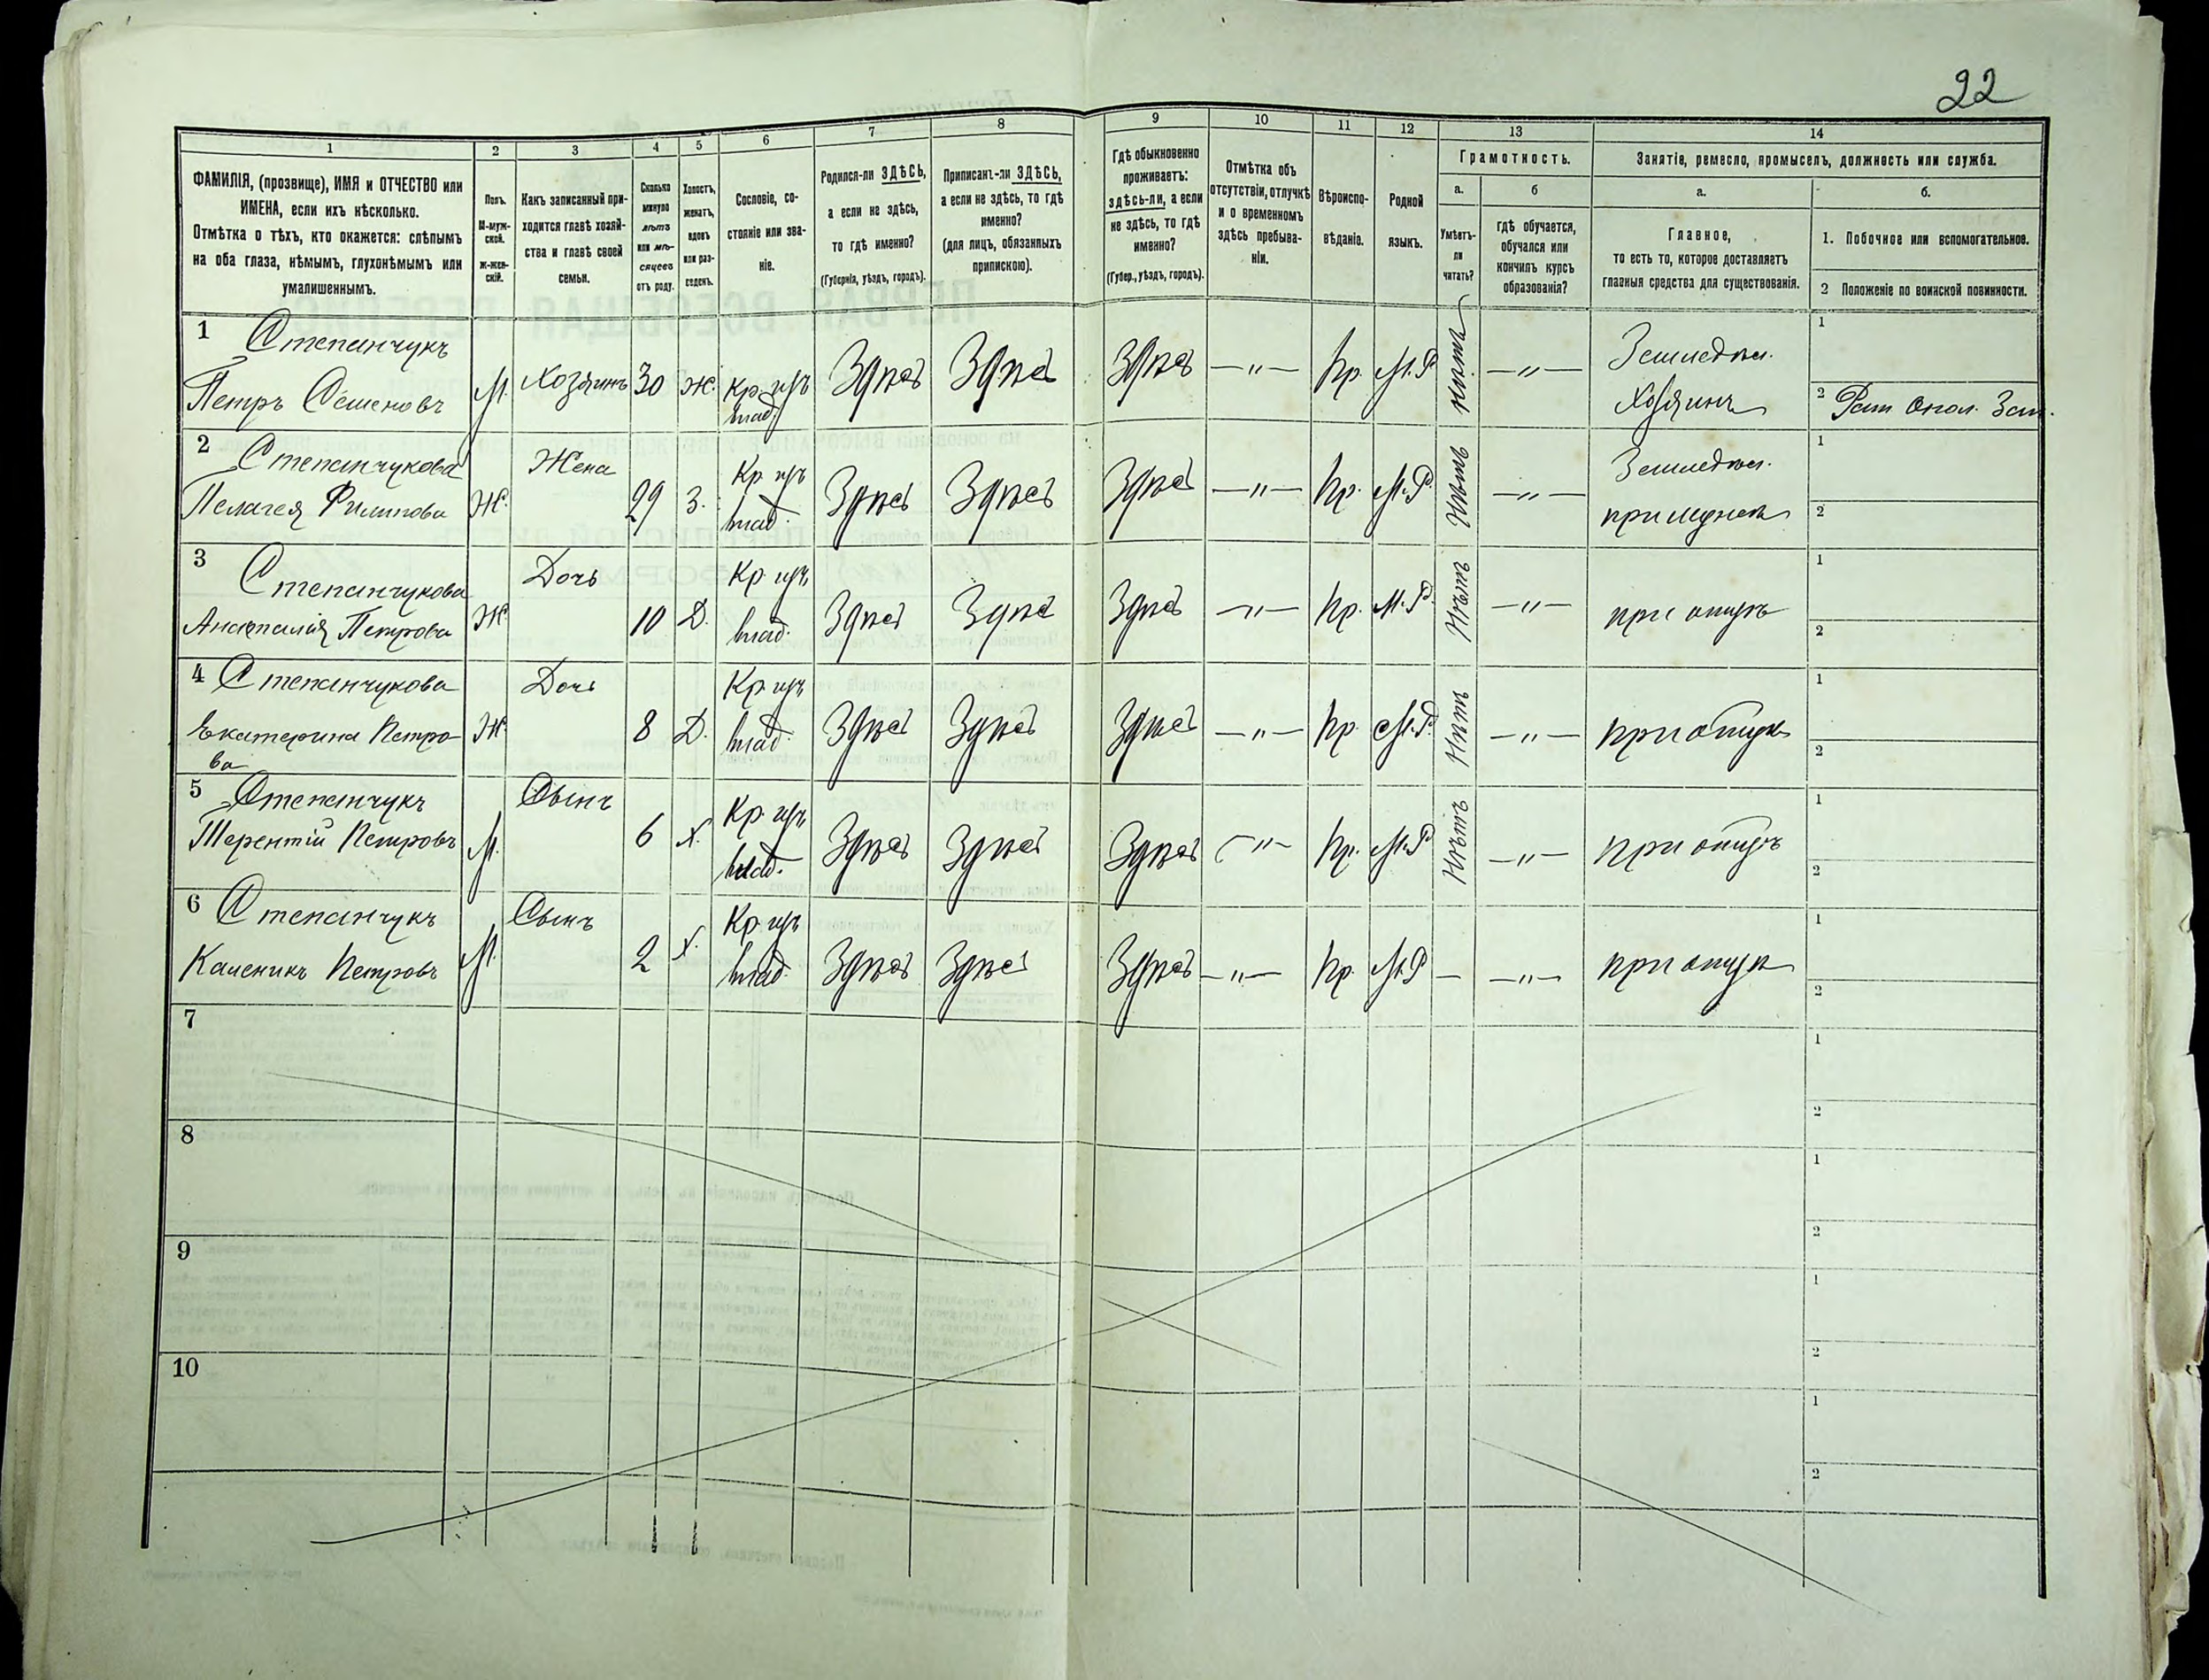 22
1
2
3
4
5
6
7
8
9
10
11
12
13
14
ФАМИЛІЯ, (прозвище), ИМЯ и ОТЧЕСТВО или
ИМЕНА, если ихъ нѣсколько.
Отмѣтка о тѣхъ, кто окажется: слѣпымъ
на оба глаза, нѣмымъ, глухонѣмымъ или
умалишеннымъ.
Полъ.
М-муж-
ской.
Ж-жен-
скій.
Какъ записанный при-
ходится главѣ хозяй-
ства и главѣ своей
семьи.
Сколько
минуло
лѣтъ
или мѣ-
сяцевъ
отъ роду.
Холостъ,
женатъ,
вдовъ
или раз-
веденъ.
Сословіе, со-
стояніе или зва-
ніе.
Родился-ли ЗДѢСЬ,
а если не здѣсь,
то гдѣ именно?
(Губернія, уѣздъ, городъ).
Приписанъ-ли ЗДѢСЬ,
а если не здѣсь, то гдѣ
именно?
(для лицъ, обязанныхъ
припискою).
Гдѣ обыкновенно
проживаетъ:
здѣсь-ли, а если
не здѣсь, то гдѣ
именно?
(Губер., уѣздъ, городъ).
Отмѣтка объ
отсутствіи, отлучкѣ
и о временномъ
здѣсь пребыва-
ніи.
Вѣроиспо-
вѣданіе.
Родной
языкъ.
Грамотность.
а.
б
Умѣетъ-
ли
читать?
Гдѣ обучается,
обучался или
кончилъ курсъ
образованія?
Занятіе, ремесло, промыселъ, должность или служба.
а.
б.
Главное,
то есть то, которое доставляетъ
главныя средства для существованія.
1. Побочное или вспомогательное.
2 Положеніе по воинской повинности.
1 Степанчукъ
Петръ Семеновъ
М. Хозяинъ 30 Ж. Кр. изъ
влад.
Здѣсь Здѣсь Здѣсь —"— Пр. М.Р. Нѣтъ —"— Земледѣл.
Хозяинъ
1
2 Рат. Опол. Зап.
2 Степанчукова
Пелагея Филипова
Ж. Жена 29 З. Кр. изъ
влад.
Здѣсь Здѣсь Здѣсь —"— Пр. М.Р. Нѣтъ —"— Земледѣл.
при мужѣ
1
2
3 Степанчукова
Анастасія Петрова
Ж. Дочь 10 Д. Кр. изъ
влад.
Здѣсь Здѣсь Здѣсь —"— Пр. М.Р. Нѣтъ —"— при отцѣ
1
2
4 Степанчукова
Екатерина Петро-
ва
Ж. Дочь 8 Д. Кр. изъ
влад.
Здѣсь Здѣсь Здѣсь —"— Пр. М.Р. Нѣтъ —"— при отцѣ
1
2
5 Степанчукъ
Терентій Петровъ
М. Сынъ 6 Х. Кр. изъ
влад.
Здѣсь Здѣсь Здѣсь —"— Пр. М.Р. Нѣтъ —"— при отцѣ
1
2
6 Степанчукъ
Каленикъ Петровъ
М. Сынъ 2 Х. Кр. изъ
влад.
Здѣсь Здѣсь Здѣсь —"— Пр. М.Р. — —"— при отцѣ
1
2
7
1
2
8
1
2
9
1
2
10
1
2